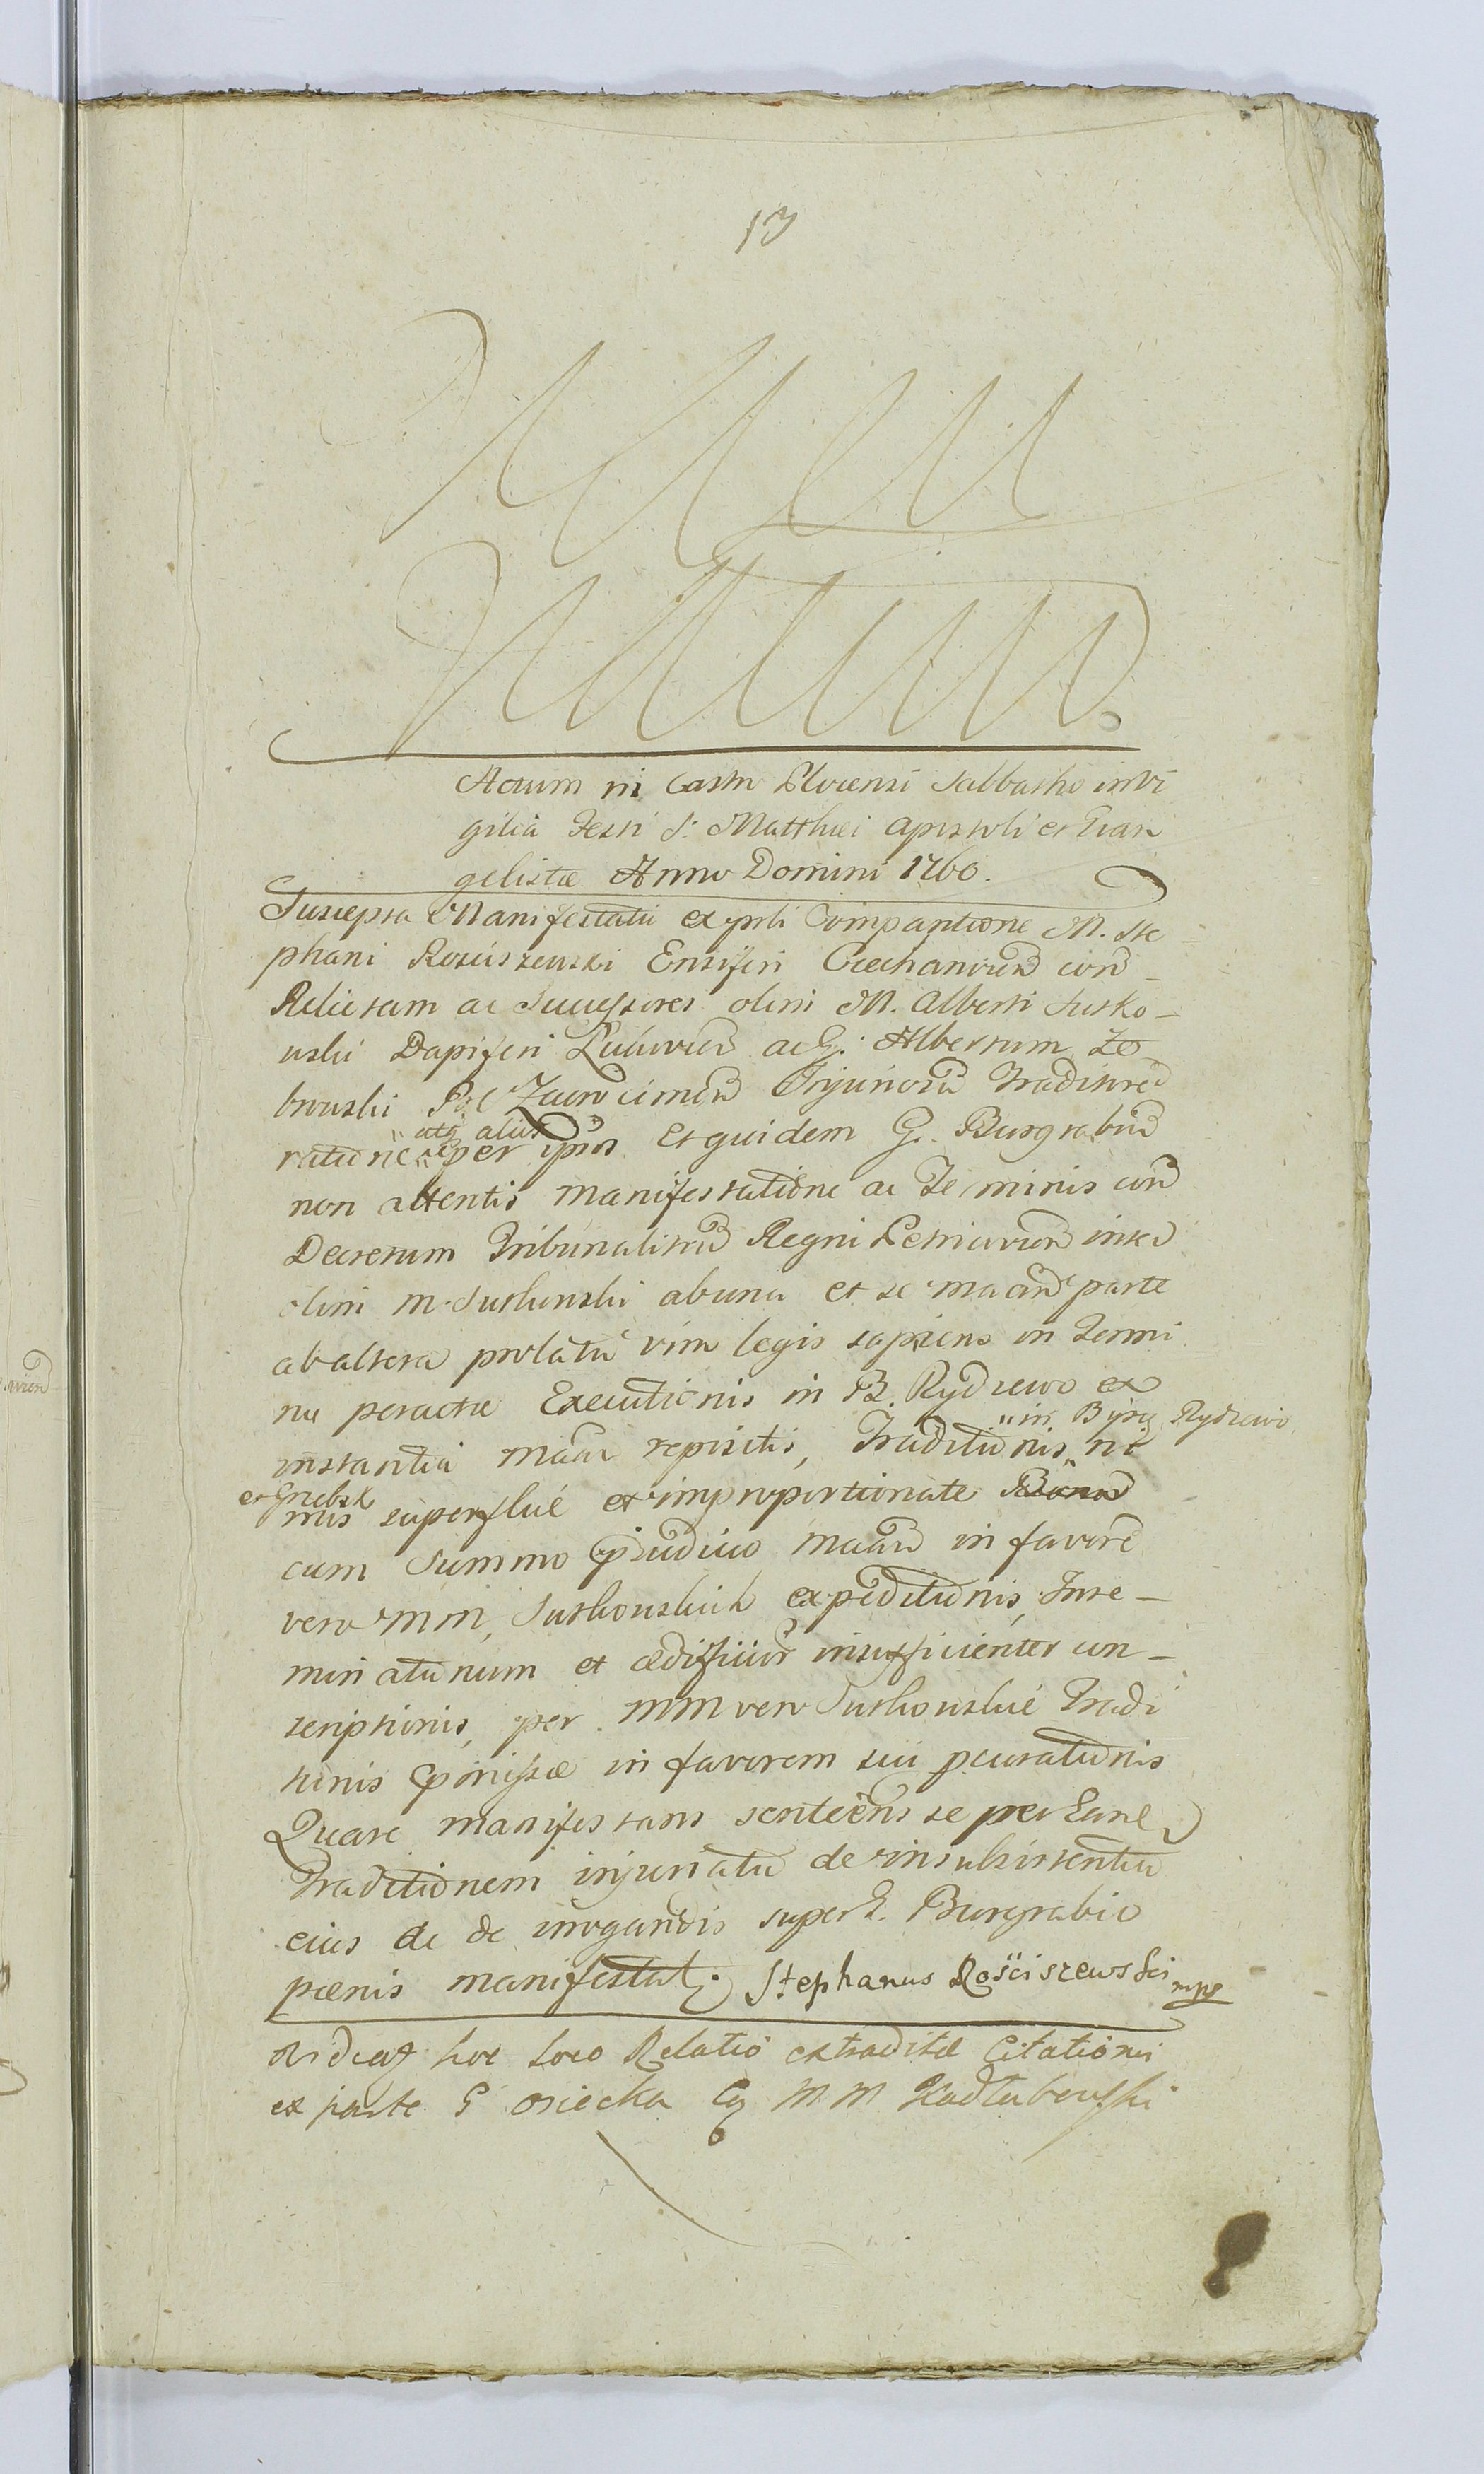 13
Actum
Actum in Castro Plocensi Sabbatho in Vi
gilia Festi S: Matthæi Apostoli et Evan
gelistæ Anno Domini 1760.
Suscepta Manifestatii ex psli Compaptione M. Ste
phani Rosciszewski Ensiferi Ciechanovien con
Relictam ac Successores olim M. Alberti Sutko
wski Dapiferi ac G. Albertum Ze
browski Zacrocimen Injuriosa Traditore
ratione per ipsos et quidem G. Burgrabiu
"utq alias
non attentis manifestatione ac Terminis con
Decretum Tribunalitiu Regni Petricovien inter
olim M. Sutkowski ab una et se maan parte
ab altera prolatu vim legis sapiens in Termi
no peractæ Executionis in B. Rydzewo ex
instantia maan repositis, Traditionis
"in Bqsq Rydzewo
et Grabsk
nus superflué et improportionate Bonon
cum Summo pjudicio maan in favore
vero MM, Sutkowskich expeditionis, Inse
minationum et ædifficior insufficienter con
scriptionis, per MM vero Sutkowskie Tradi
tionis in favorem sui pcurationis
Quare manifestans sentiens se per Eand
Traditionem injuriatu de insubsistentia
eius de de irrogandis super G. Burgrabio
pænis manifestat. Stephanus Rościszewski mpp
Ordietq hoc loco Relatio extraditæ Citationis
ex parte G Osiecka Cq M M Kadłubowski